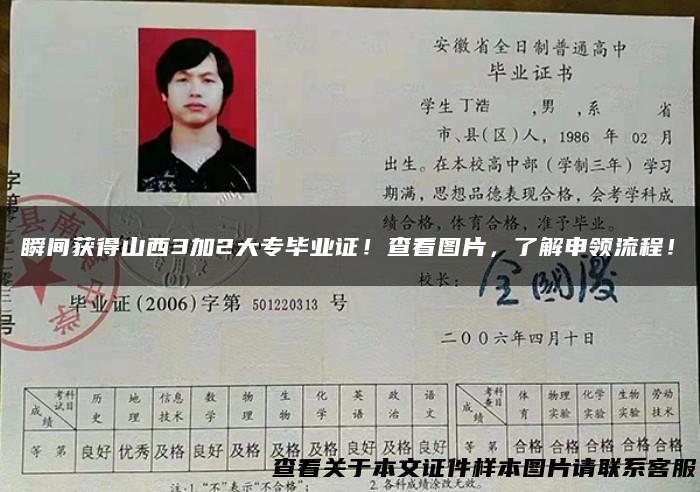 安徽省全日制普通高中
毕业证书
学生 丁浩 ,男 ,系 省
市、县(区)人，1986 年 02 月
出生。在本校高中部（学制三年）学习
期满，思想品德表现合格，会考学科成
绩合格，体育合格，准予毕业。
瞬间获得山西3加2大专毕业证！查看图片，了解申领流程！
校长：
毕业证(2006)字第 501220313 号
二〇〇六年四月十日
考试科目 历史 地理 信息技术 数学 物理 生物 化学 英语 政治 语文
成绩
等 第 良好 优秀 及格 良好 及格 及格 及格 良好 及格 良好
考查科目 体育 物理实验 化学实验 生物实验 劳动技术
成绩
等 第 合格 合格 合格 合格 合格
注:1.“不”表示“不合格”；
2.各科成绩涂改无效。
查看关于本文证件样本图片请联系客服